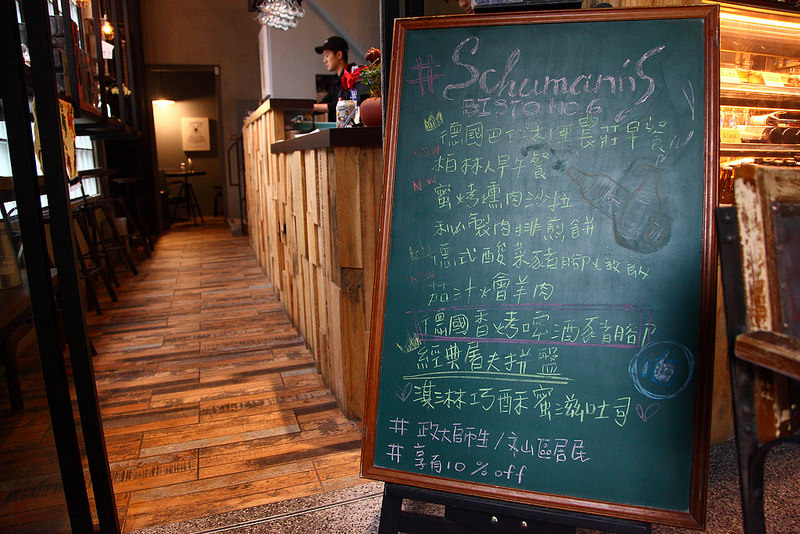 # Schumann's
BISTO NO 6
德國巴 農莊早餐
柏林人早午餐
蜜烤燻肉沙拉
私製肉排煎餅
德式酸菜豬腳燉飯
茄汁燴羊肉
德國香烤啤酒豬腳
經典屠夫拼盤
淇淋巧酥蜜滋吐司
# 政大師生/文山區居民
# 享有10% off